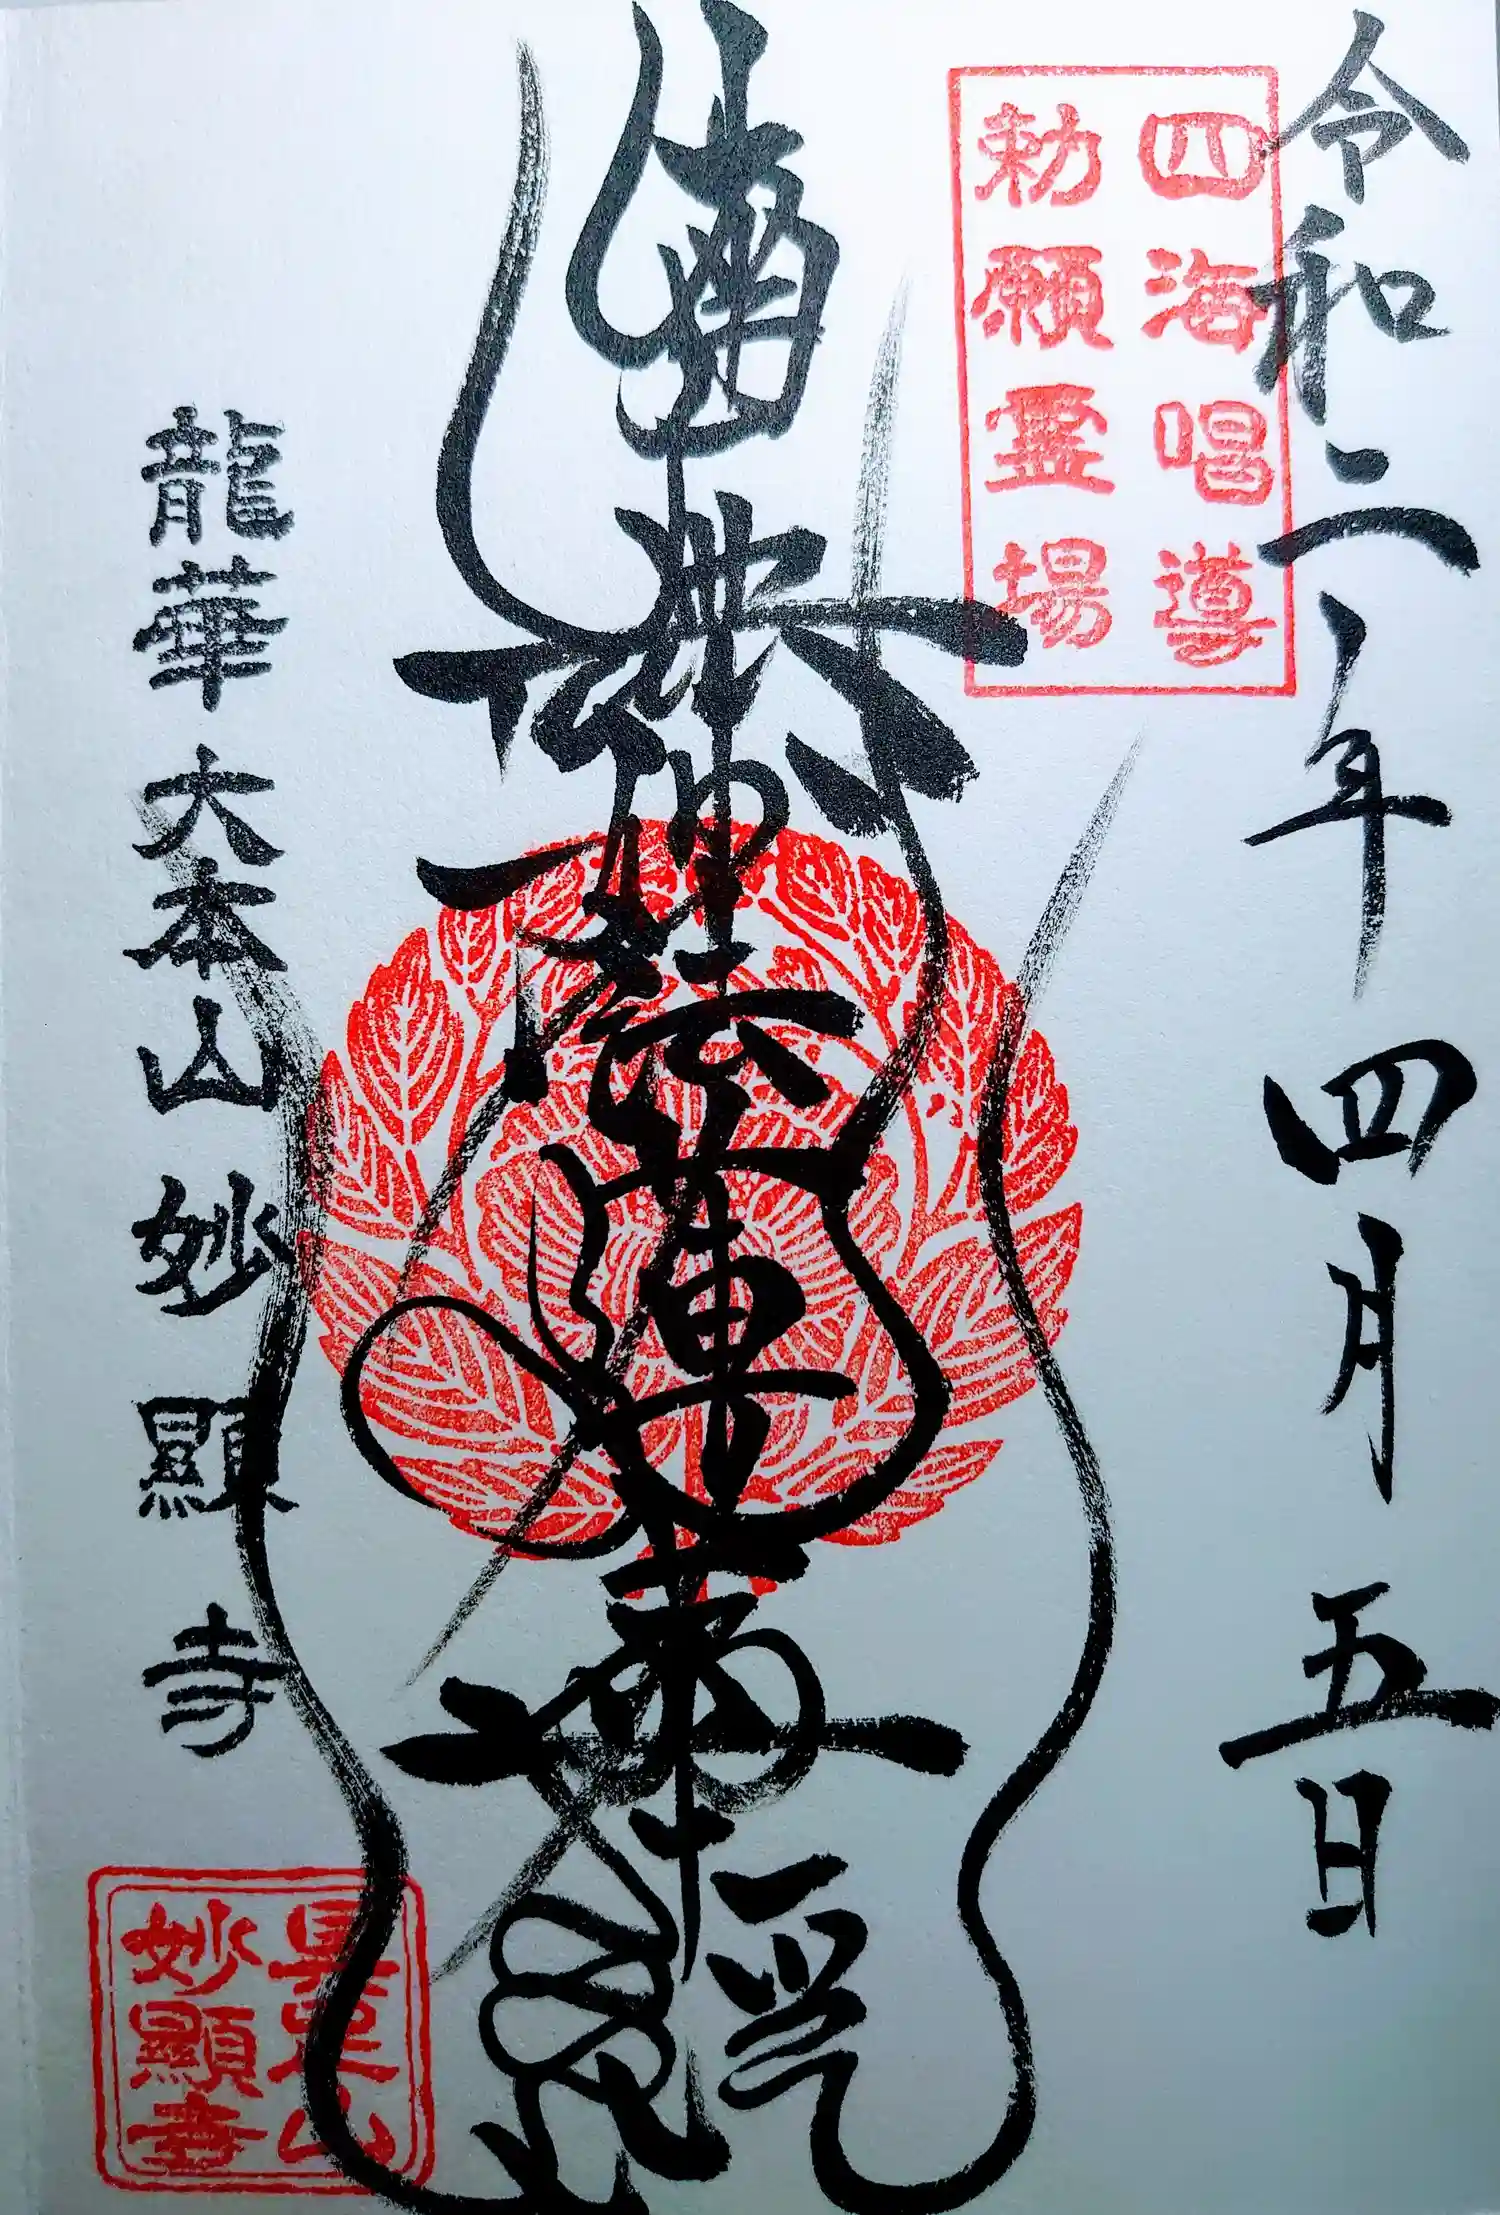 令和二年四月五日
四海唱導
勅願霊場
南無妙法蓮華経
龍華 大本山 妙顯寺
具足山
妙顯寺